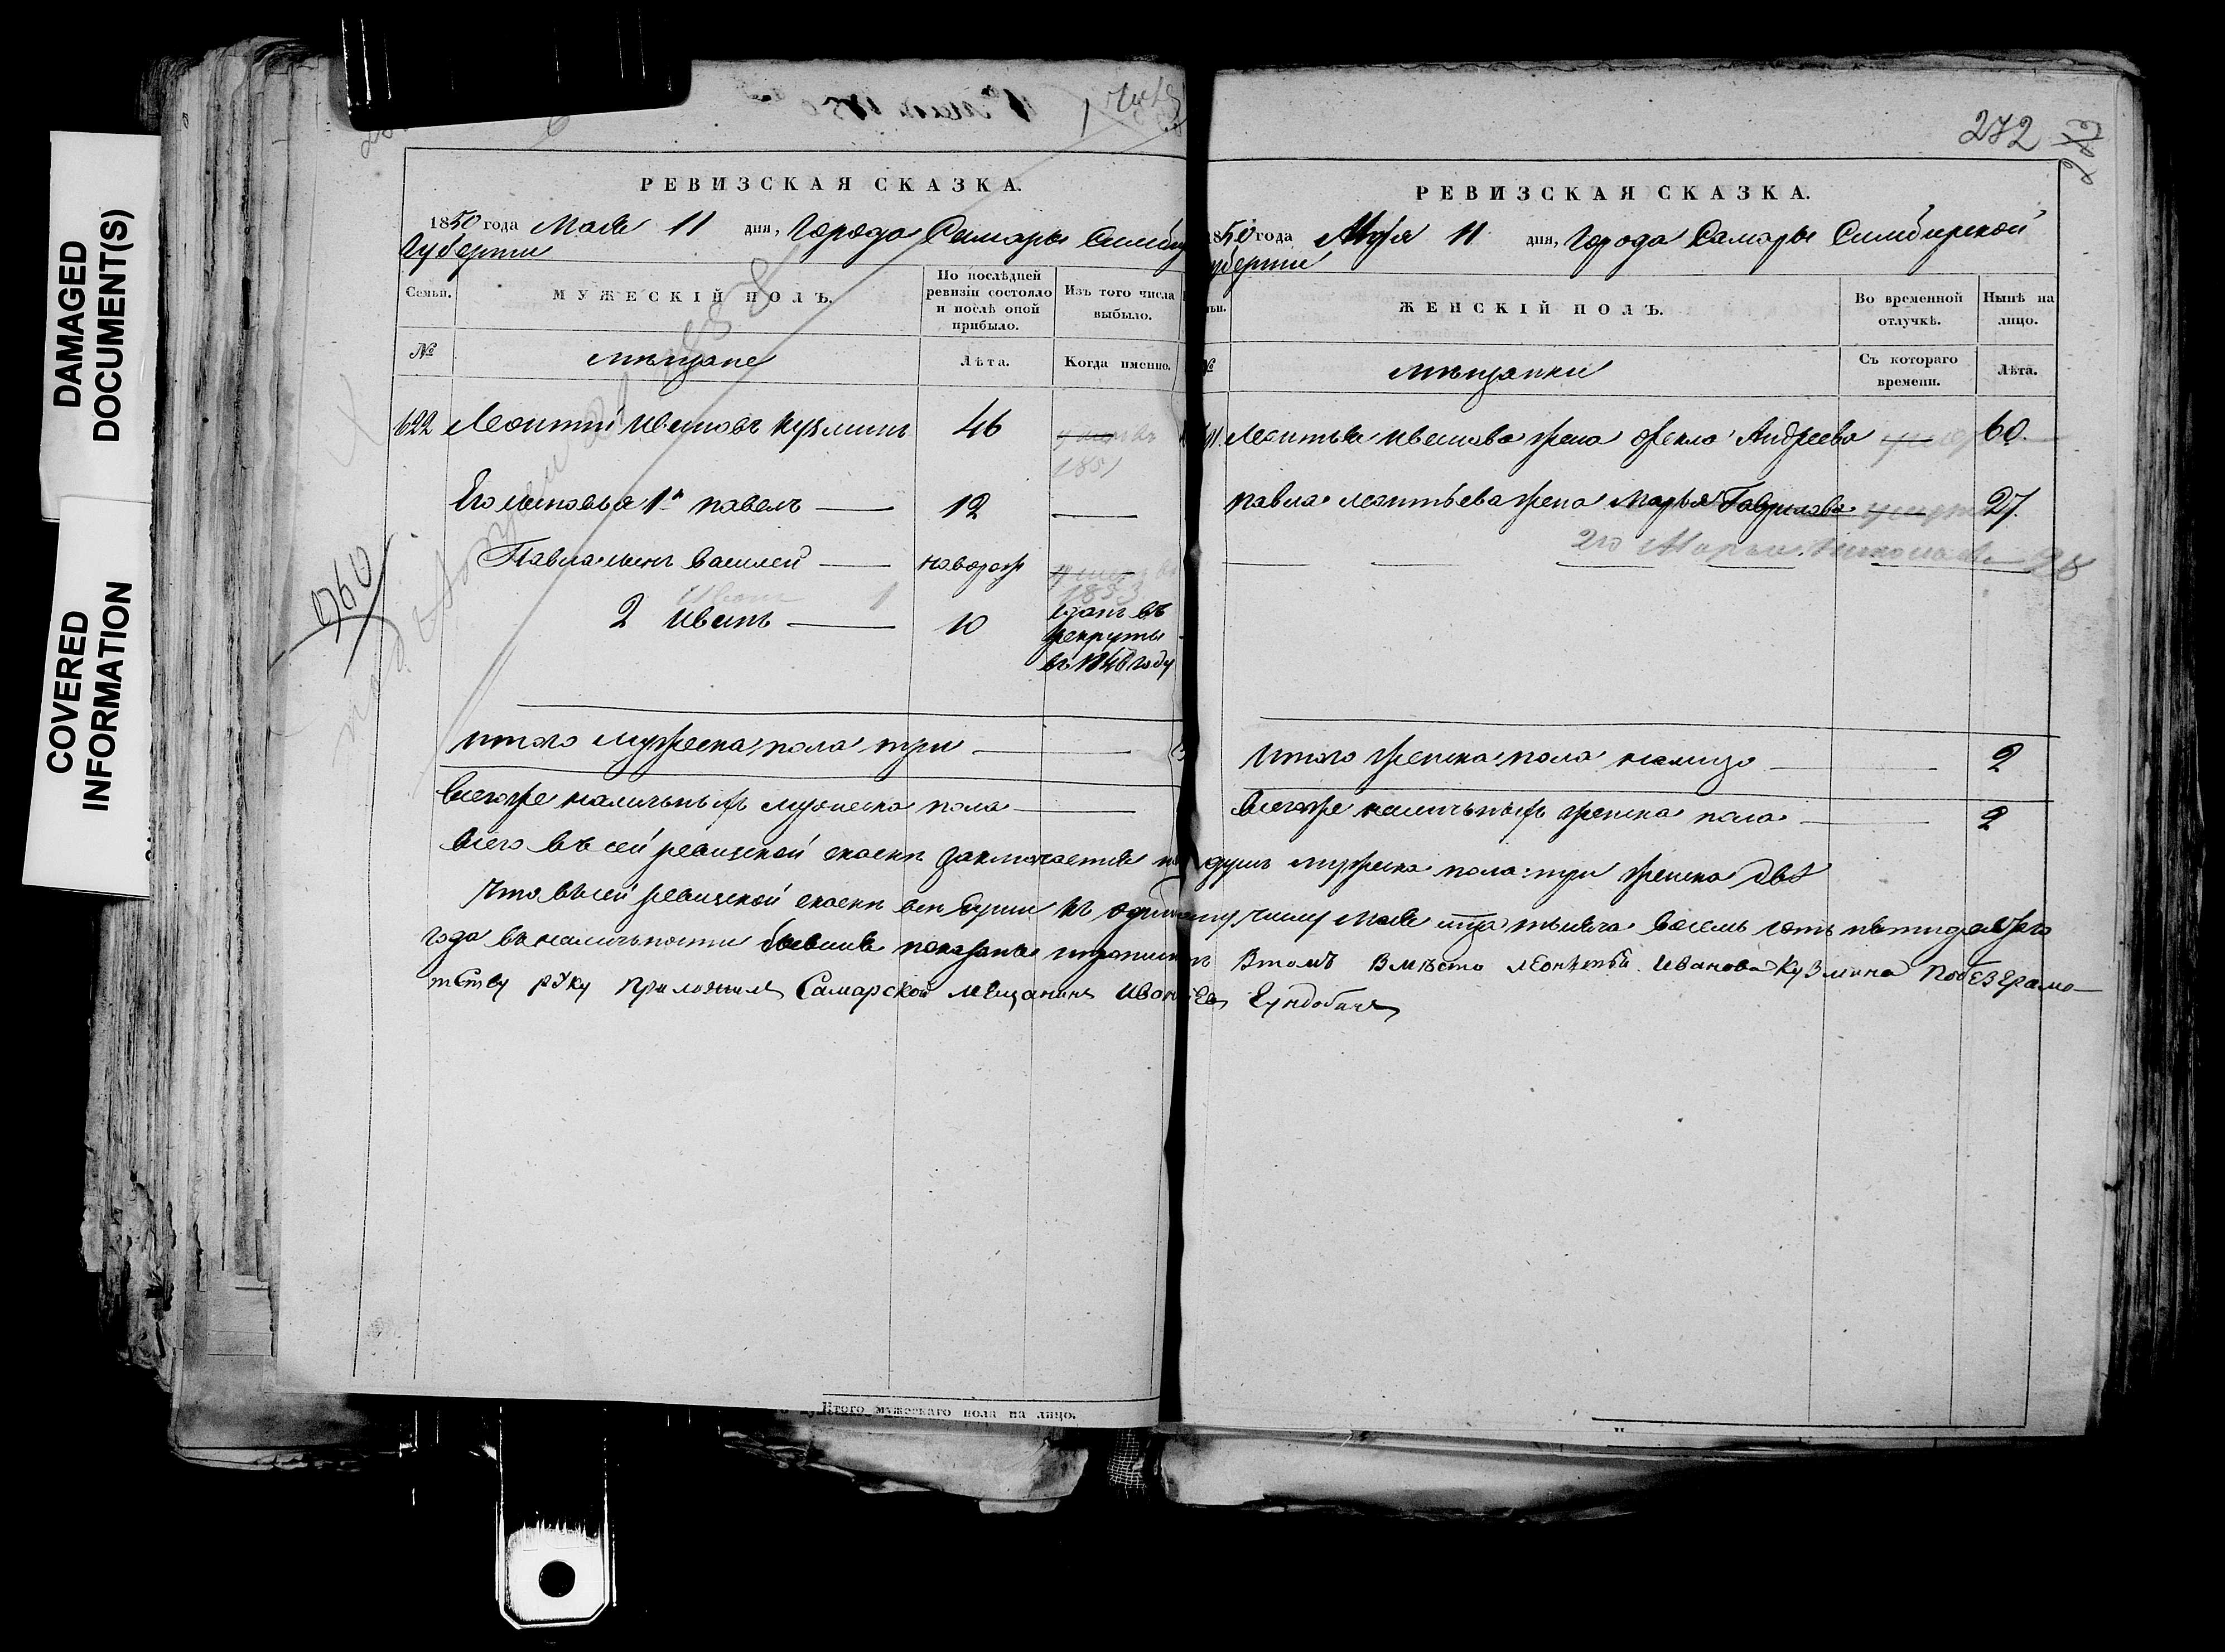 DAMAGED
DOCUMENT(S)
COVERED
INFORMATION
960
РЕВИЗСКАЯ СКАЗКА.
1850 года Мая 11 дня, Города Самары
Губернии
Семьи.
МУЖЕСКІЙ ПОЛЪ.
По послѣдней
ревизіи состояло
и послѣ оной
прибыло.
Изъ того числа
выбыло.
№
мѣщане
Лѣта.
Когда именно.
622 Леонтій Ивановъ Кузминъ 46
1851
Его сыновья 1й павелъ — 12 —
Павла сынъ Василей — новорож
1853
2 Иванъ — 10
отданъ въ
рекруты
въ 1848 году
итого мужеска пола три —
всегоже наличныхъ мужеска пола —
272
РЕВИЗСКАЯ СКАЗКА.
1850 года Мая 11 дня, Города Самары Симбирской
губернии
№
ЖЕНСКІЙ ПОЛЪ.
Во временной
отлучкѣ.
Нынѣ на
лицо.
мѣщанки
Съ котораго
времени.
Лѣта.
Леонтья иванова жена Фекла Андреева 60.
павла леонтьева жена Марья Гаврилова 27.
2го Марья 28
итого женска пола налицо — 2
всегоже наличныхъ женска пола — 2
всего въ сей ревизской сказкѣ заключается душъ мужеска пола: три женска двѣ
Что въ сей ревизской сказкѣ всѣ души къ числу Мая мца тысяча восемь сотъ пятидесятаго
года въ наличности бывшия показаны Втомъ Вмѣсто Иванова Кузмина Побезграмо-
тству рУку Приложилъ Самарской Мещанинъ
Итого мужескаго пола на лицо.